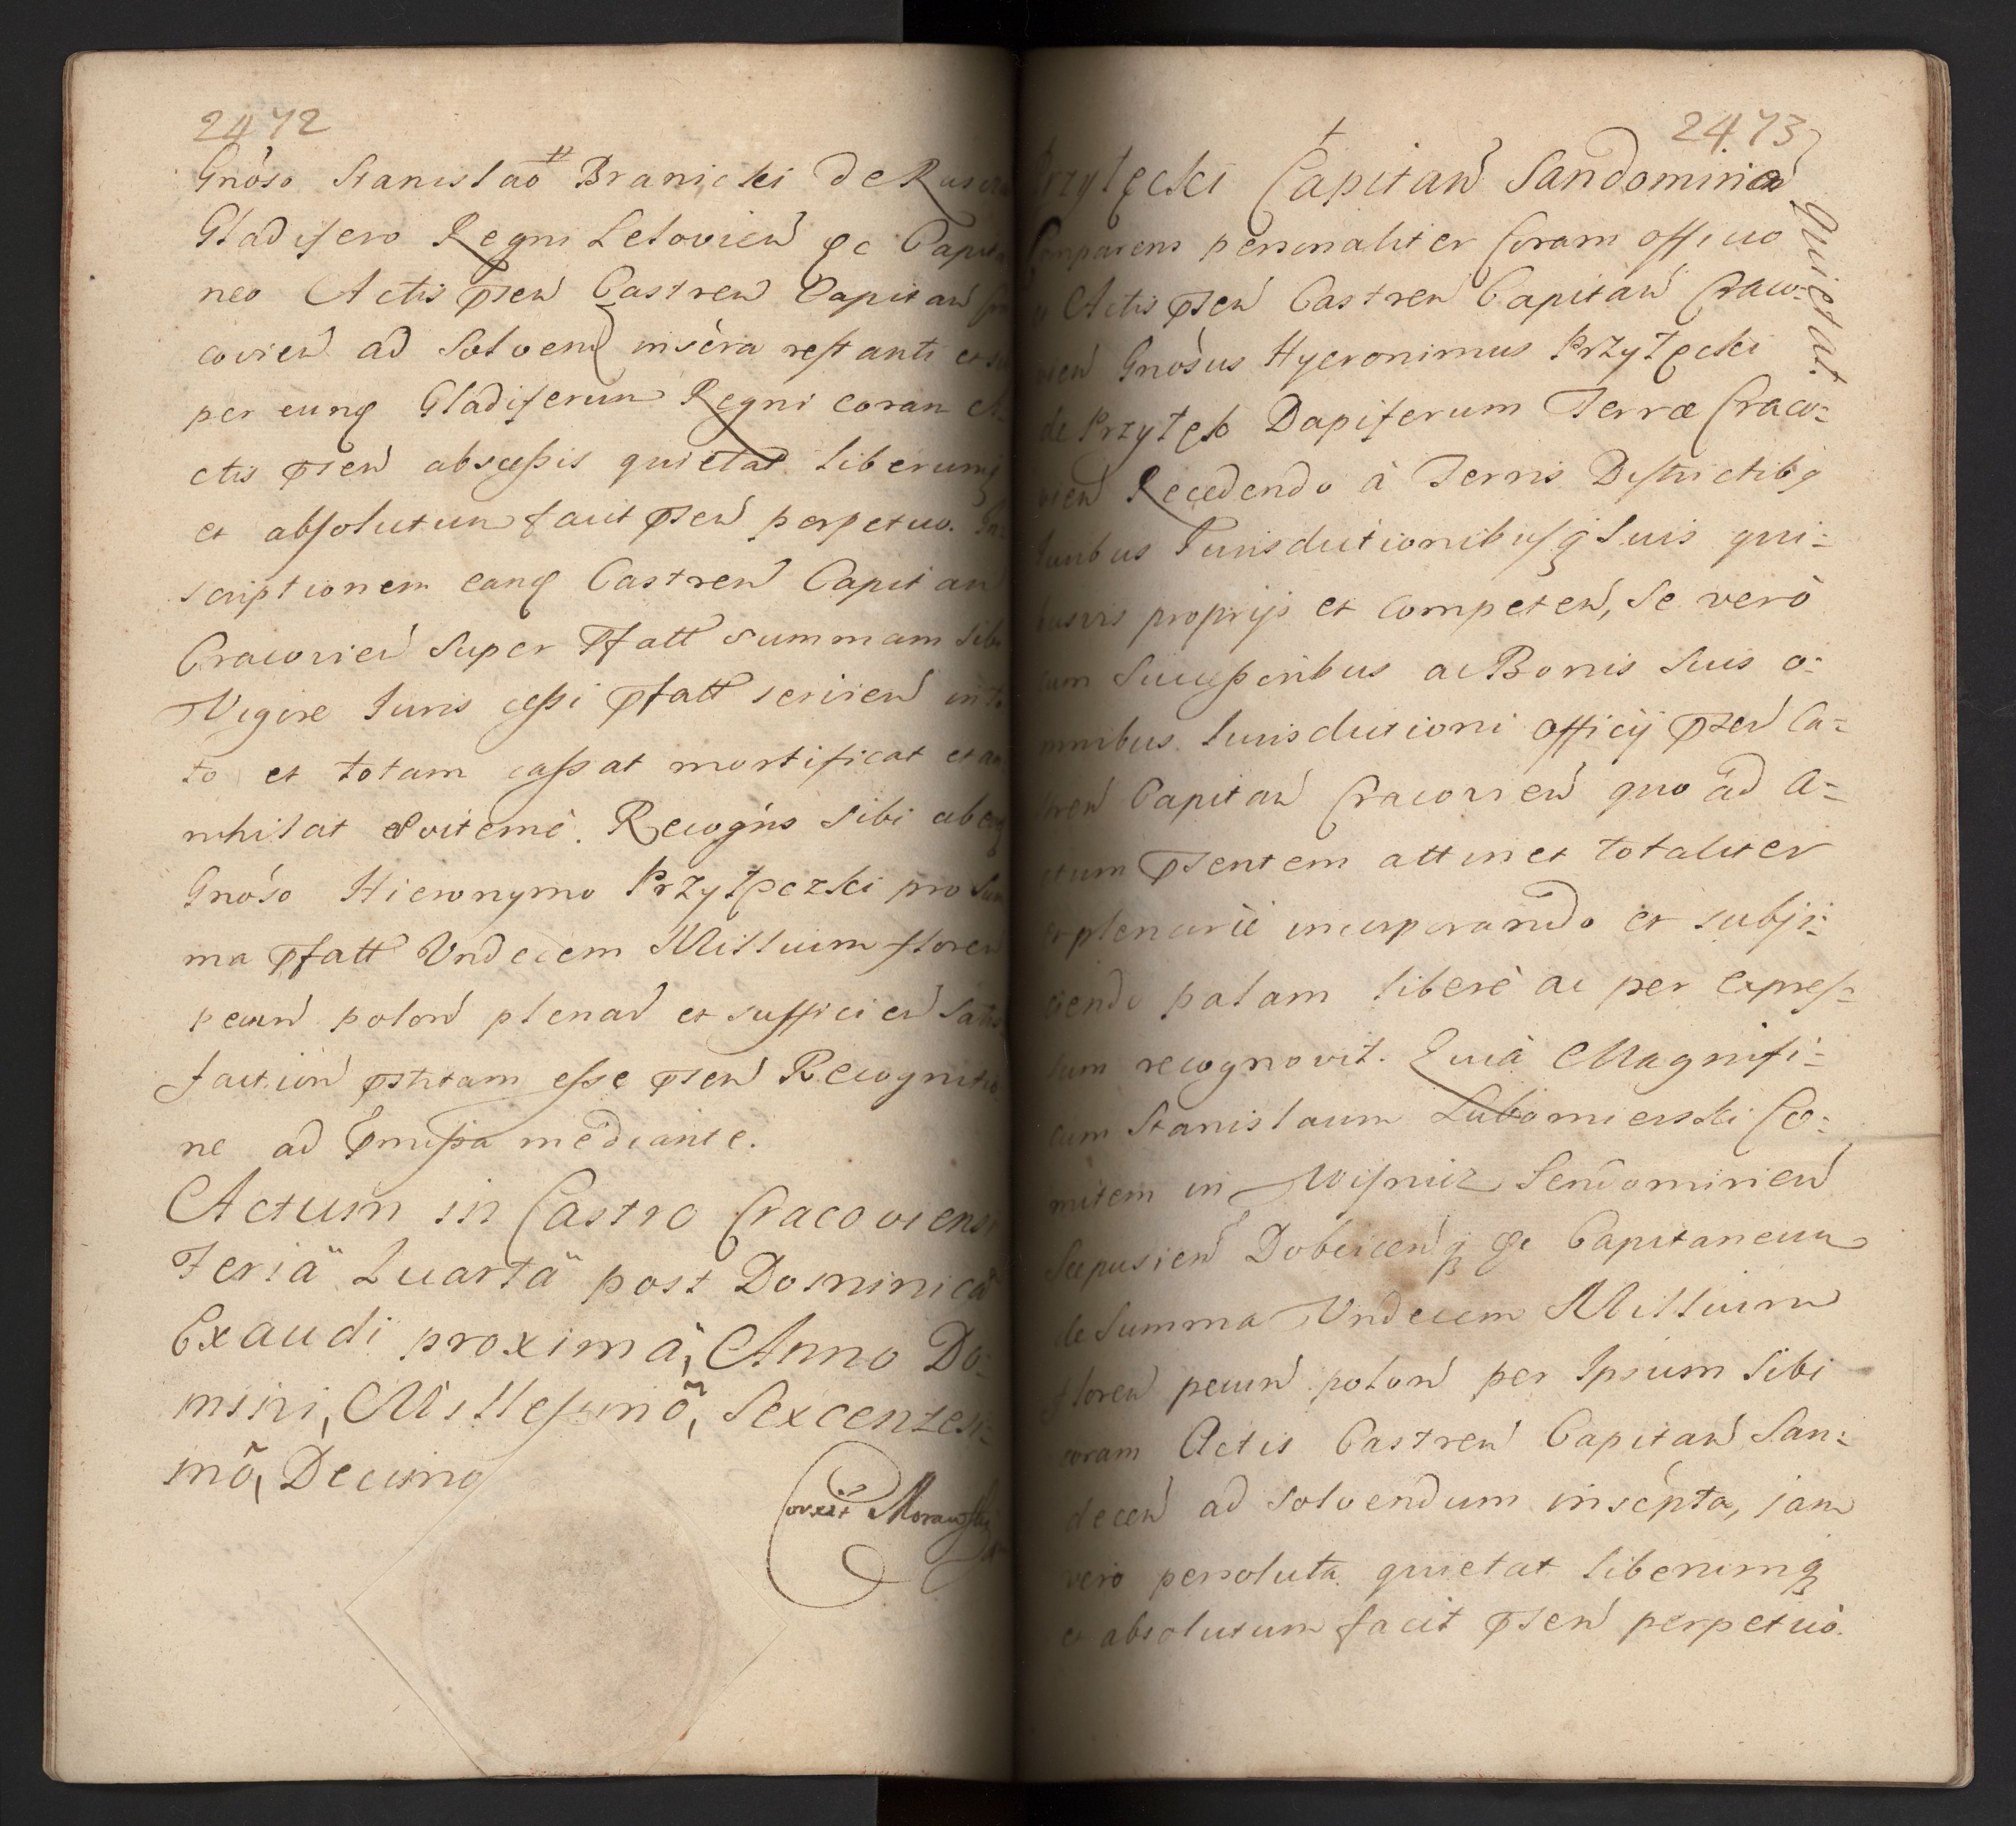 2472
Gnoso Stanislao Branicki de
Gladifero Regni Lelovien̄ &c Capita
neo Actis p̄sen̄ Castren̄ Capitan̄
covien̄ ad solvend inscra restanti et
per eunq Gladiferum Regni coram
ctis p̄sen̄ abscessis quietat liberumq
et absolutum facit p̄sen̄ perpetuo.
scriptionem eanq Castren̄ Capitan̄
Cracovien̄ super p̄fatt summam sibi
Vigore Juris cessi p̄fatt servien̄ in
to et totam cassat mortificat et an
nihilat &vitemė. Recogns sibi ab
Gnoso Hieronymo Przyłęczki pro Sum
ma p̄fatt Undecem Millium floren̄
pecun̄ polon̄ plenam et sufficien̄ satis
faction̄ p̄stitam esse p̄sen̄ Recognitio
ne ad p̄missa mediante.
Actum in Castro Cracoviensi
Feriā Quartā post Dominicā
Exaudi proximā, Anno Do-
mini, Millesimō, Sexcentesi-
mō, Decimo
Corxit Morawski
2473
Przyłęcki Capitan̄ Sandomirien̄
Quietat.
Comparens personaliter Coram officio
et Actis p̄sen̄ Castren̄ Capitan̄ Craco-
vien̄ Gnosus Hyeronimus Przyłęcki
de Przyłęk Dapiferum Terræ Craco-
vien̄ Recedendo à Terris Districtibq
Juribus Jurisdictionibusq Suis qui-
busvis proprijs et competen̄, Se verò
cum Successoribus ac Bonis Suis o-
mnibus Jurisdictioni officij p̄sen̄ Ca-
stren̄ Capitan̄ Cracovien̄ quo ad A-
ctum p̄sentem attinet totaliter
et plenariè incorporando et subji-
ciendo palam liberè ac per expres-
sum recognovit. Quià Magnifi-
cum Stanislaum Lubomierski Co-
mitem in Wisnicz Sendomirien̄
Scepusien̄ Dobcicen̄q &c Capitaneum
de Summa Undecem Millium
floren̄ pecun̄ polon̄ per Ipsum Sibi
coram Actis Castren̄ Capitan̄ San-
decen̄ ad solvendum inscpta, jam
vero persoluta quietat liberumq
et absolutum facit p̄sen̄ perpetuò.